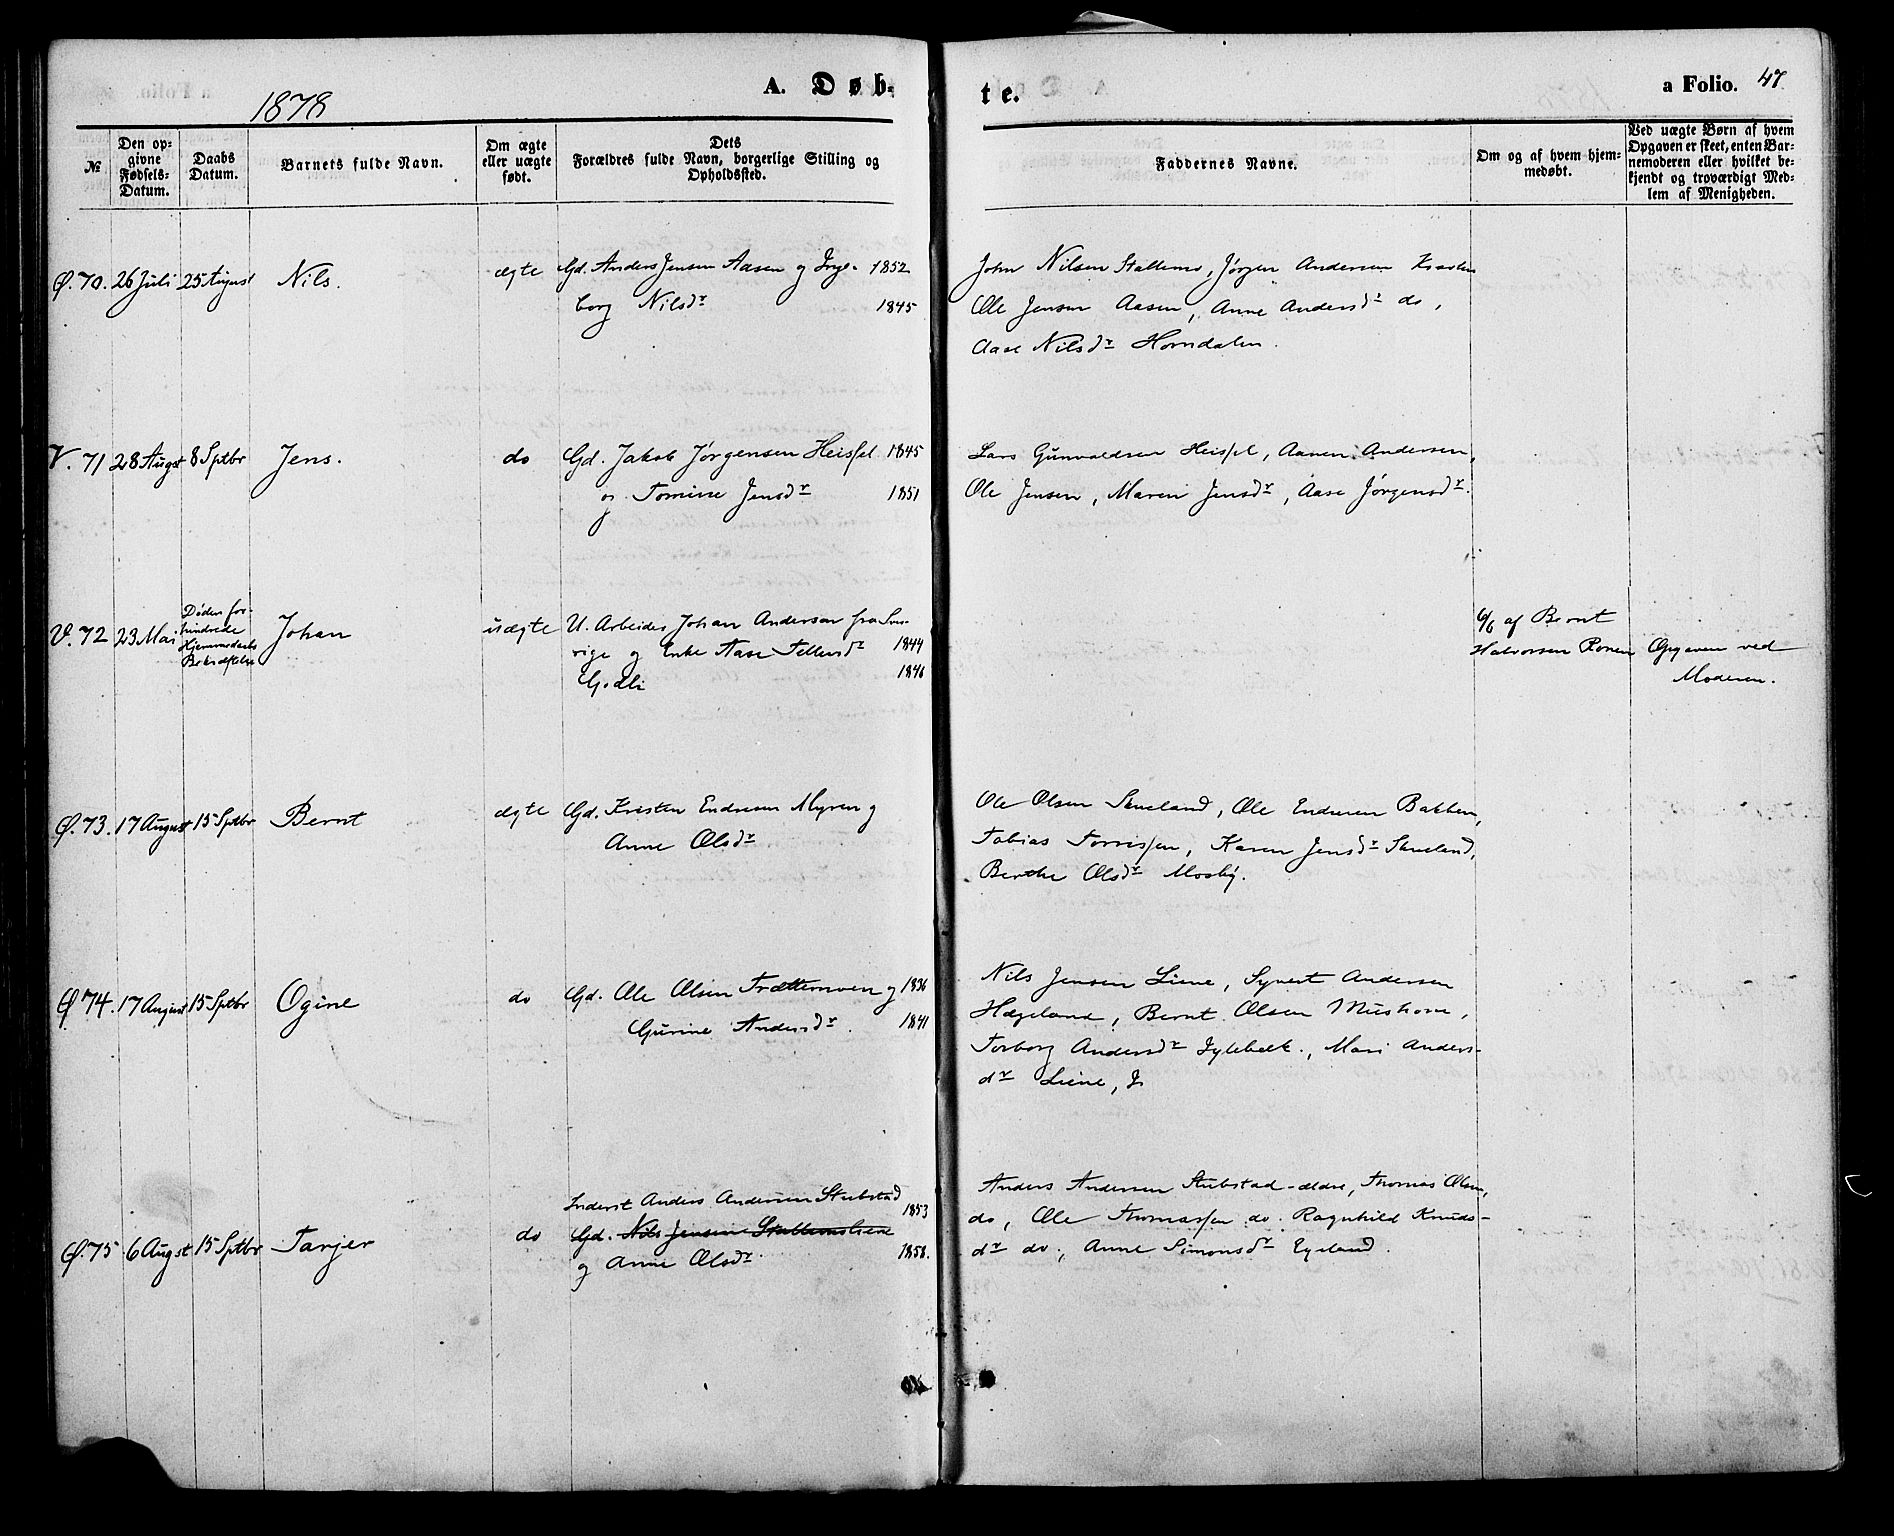 1878
A. Døb-
te.
a Folio. 47
№
Den op-
givne
Fødsels-
Datum.
Daabs
Datum.
Barnets fulde Navn.
Om ægte
eller uægte
født.
Dets
Forældres fulde Navn, borgerlige Stilling og
Opholdssted.
Faddernes Navne.
Om og af hvem hjem-
medøbt.
Ved uægte Børn af hvem
Opgaven er skeet, enten Bar-
nemoderen eller hvilket be-
kjendt og troværdigt Med-
lem af Menigheden.
Ø. 70. 26 Juli 25 August Nils. ægte Gd. Anders Jensen Aasen og Inge- 1852
borg Nilsdr 1845
John Nilsen Stallemo, Jørgen Andersen
Ole Jensen Aasen, Anne Andersdr do,
Aase Nilsdr Homdalen.
V. 71 28 Augst 8 Sptbr Jens. do Gd. Jakob Jørgensen Heissel 1845
og Tomine Jensdr 1851
Lars Gunvaldsen Heissel, Aanen Andersen,
Ole Jensen, Maren Jensdr, Aase Jørgensdr.
V. 72 23 Mai
Døden for-
hindrede
Hjemmedaabs
Bekræftelse
Johan uægte U. Arbeider Johan Anderson fra Sve-
rige og Enke Aase Tellefsdr 1844
Godli 1846
6/6 af Bernt
Halvorsen Roen
Opgaven ved
Moderen.
Ø. 73. 17 August 15 Sptbr Bernt ægte Gd. Kristen Endresen Myren og
Anne Olsdr
Ole Olsen Skueland, Ole Endresen Bakken,
Tobias Torrissen, Karen Jensdr Skueland,
Berthe Olsdr Mosby.
Ø 74. 17 August 15 Sptbr Ogine do Gd. Ole Olsen Trættemoen og 1836
Gurine Andersdr. 1841
Nils Jensen Liene, Syvert Andersen
Hægeland, Bernt Olsen Mushom,
Torborg Andersdr Fylebæk., Mari Anders-
dr Liene, J.
Ø. 75 6 Augst 15 Sptbr Tarjer do
Inderst Anders Andersen Stubstad 1853
Gd. Nils Jensen Stallemo Liene
og Anne Olsdr. 1858.
Anders Andersen Stubstad ældre, Thomas Olsen,
do, Ole Thomassen do. Ragnhild Knuds-
dr do., Anne Simonsdr Eyeland.